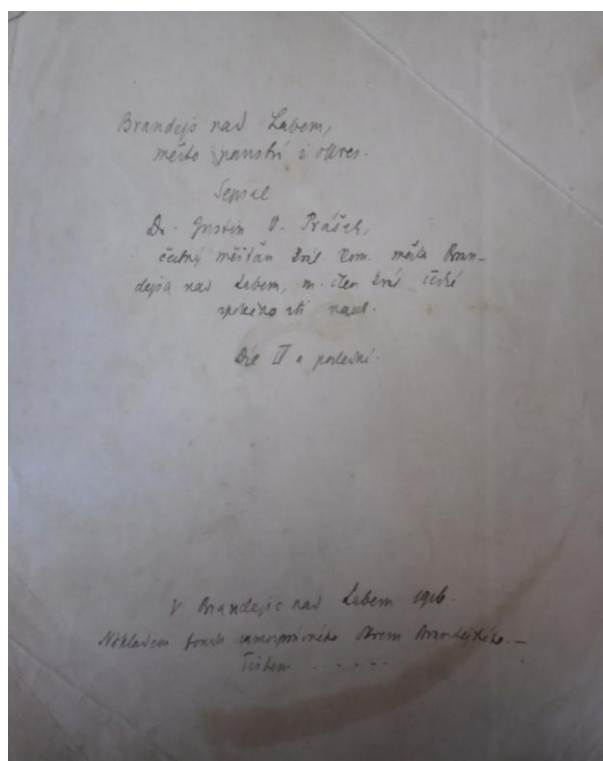 Brandejs nad Labem,
město panství i okres.
Sepsal
Dr. Justin V. Prášek,
čestný měšťan král. kom. města Bran-
dejsa nad Labem, m. člen král. české
společnosti nauk.
Díl IV a poslední.
V Brandejse nad Labem 1916.
Nákladem fondu samosprávného Okresu Brandejského. —
Tiskem . . . . .